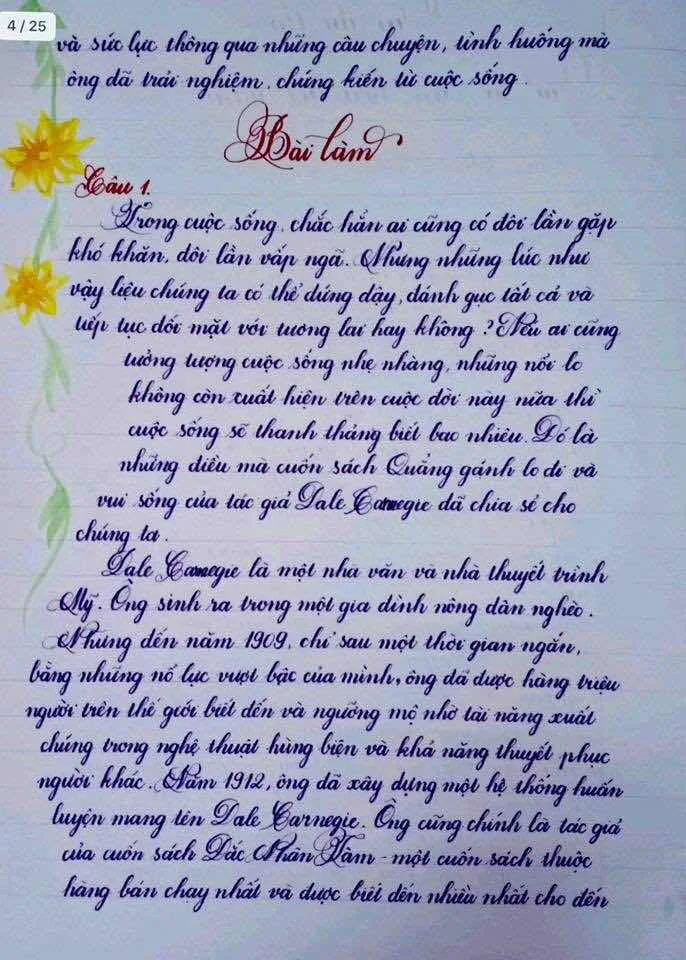 4 / 25
và sức lực thông qua những câu chuyện, tình huống mà
ông đã trải nghiệm, chứng kiến từ cuộc sống.
Bài làm
Câu 1.
Trong cuộc sống, chắc hẳn ai cũng có đôi lần gặp
khó khăn, đôi lần vấp ngã. Nhưng những lúc như
vậy liệu chúng ta có thể đứng dậy, đánh gục tất cả và
tiếp tục đối mặt với tương lai hay không? Nếu ai cũng
tưởng tượng cuộc sống nhẹ nhàng, những nỗi lo
không còn xuất hiện trên cuộc đời này nữa thì
cuộc sống sẽ thanh thảng biết bao nhiêu. Đó là
những điều mà cuốn sách Quẳng gánh lo đi và
vui sống của tác giả Dale Carnegie đã chia sẻ cho
chúng ta.
Dale Carnegie là một nhà văn và nhà thuyết trình
Mỹ. Ông sinh ra trong một gia đình nông dân nghèo.
Nhưng đến năm 1909, chỉ sau một thời gian ngắn,
bằng những nỗ lực vượt bậc của mình, ông đã được hàng triệu
người trên thế giới biết đến và ngưỡng mộ nhờ tài năng xuất
chúng trong nghệ thuật hùng biện và khả năng thuyết phục
người khác. Năm 1912, ông đã xây dựng một hệ thống huấn
luyện mang tên Dale Carnegie. Ông cũng chính là tác giả
của cuốn sách Đắc Nhân Tâm - một cuốn sách thuộc
hàng bán chạy nhất và được biết đến nhiều nhất cho đến